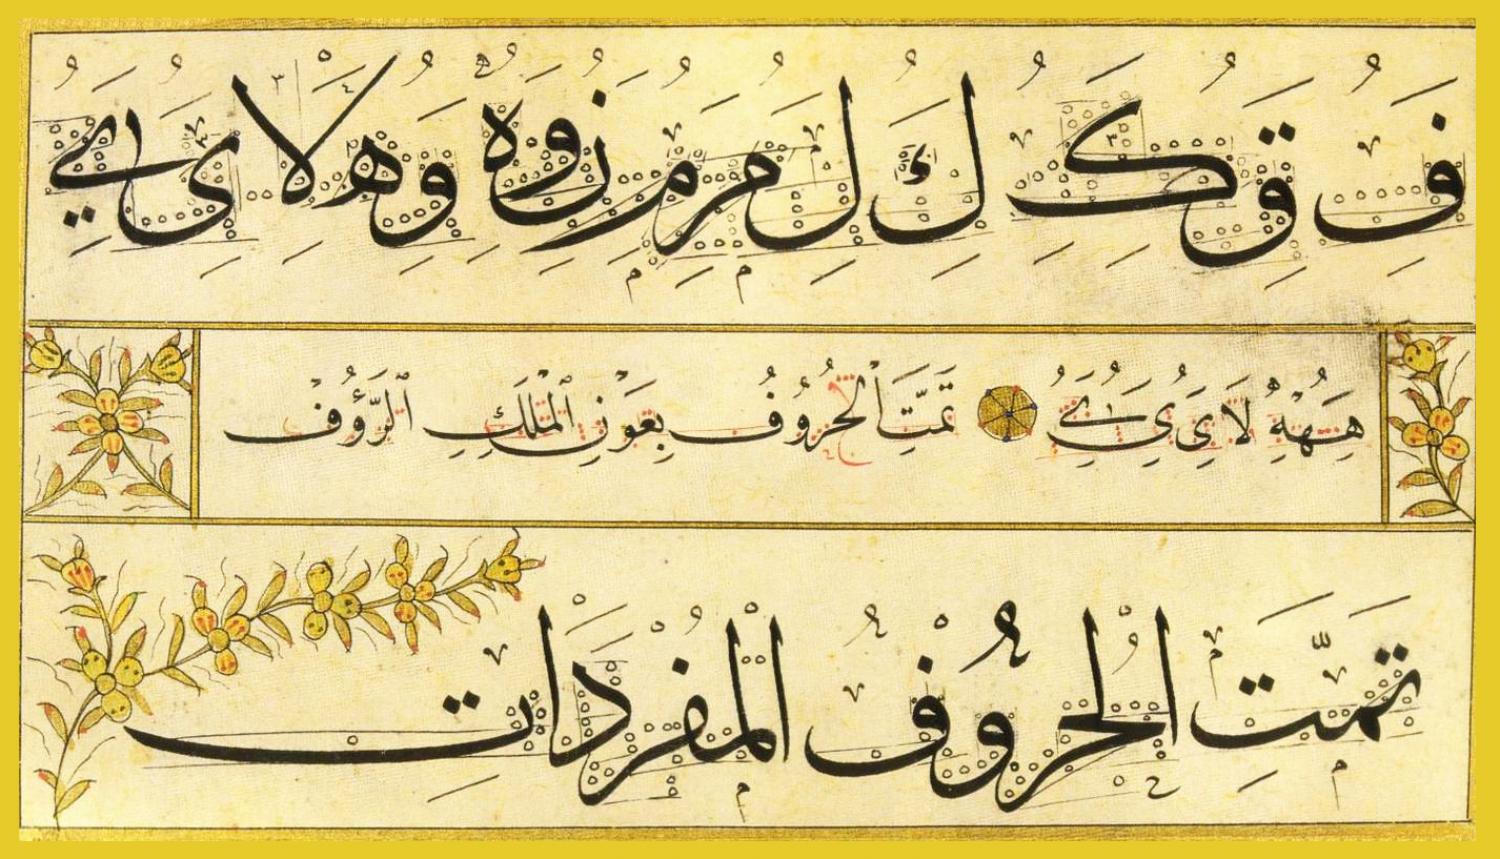 ف ق ك ك ل م م ن و ه و ه لا ى ي
ههه لا ى ى ي تَمَّتِ الْحُرُوفُ بِعَوْنِ الْمَلِكِ الرَّؤُفِ
تَمَّتِ الْحُرُوفُ الْمُفْرَدَاتِ